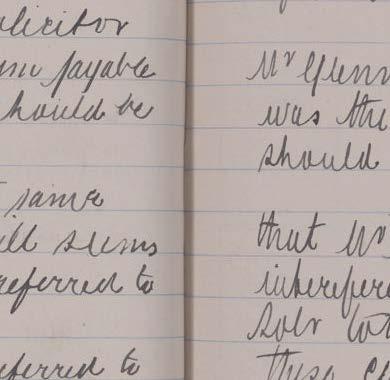 olicitor
um payable
should be
same
ill seems
referred to
eferred to
Mr Glenn
was the
should
that Mr
Solr
these